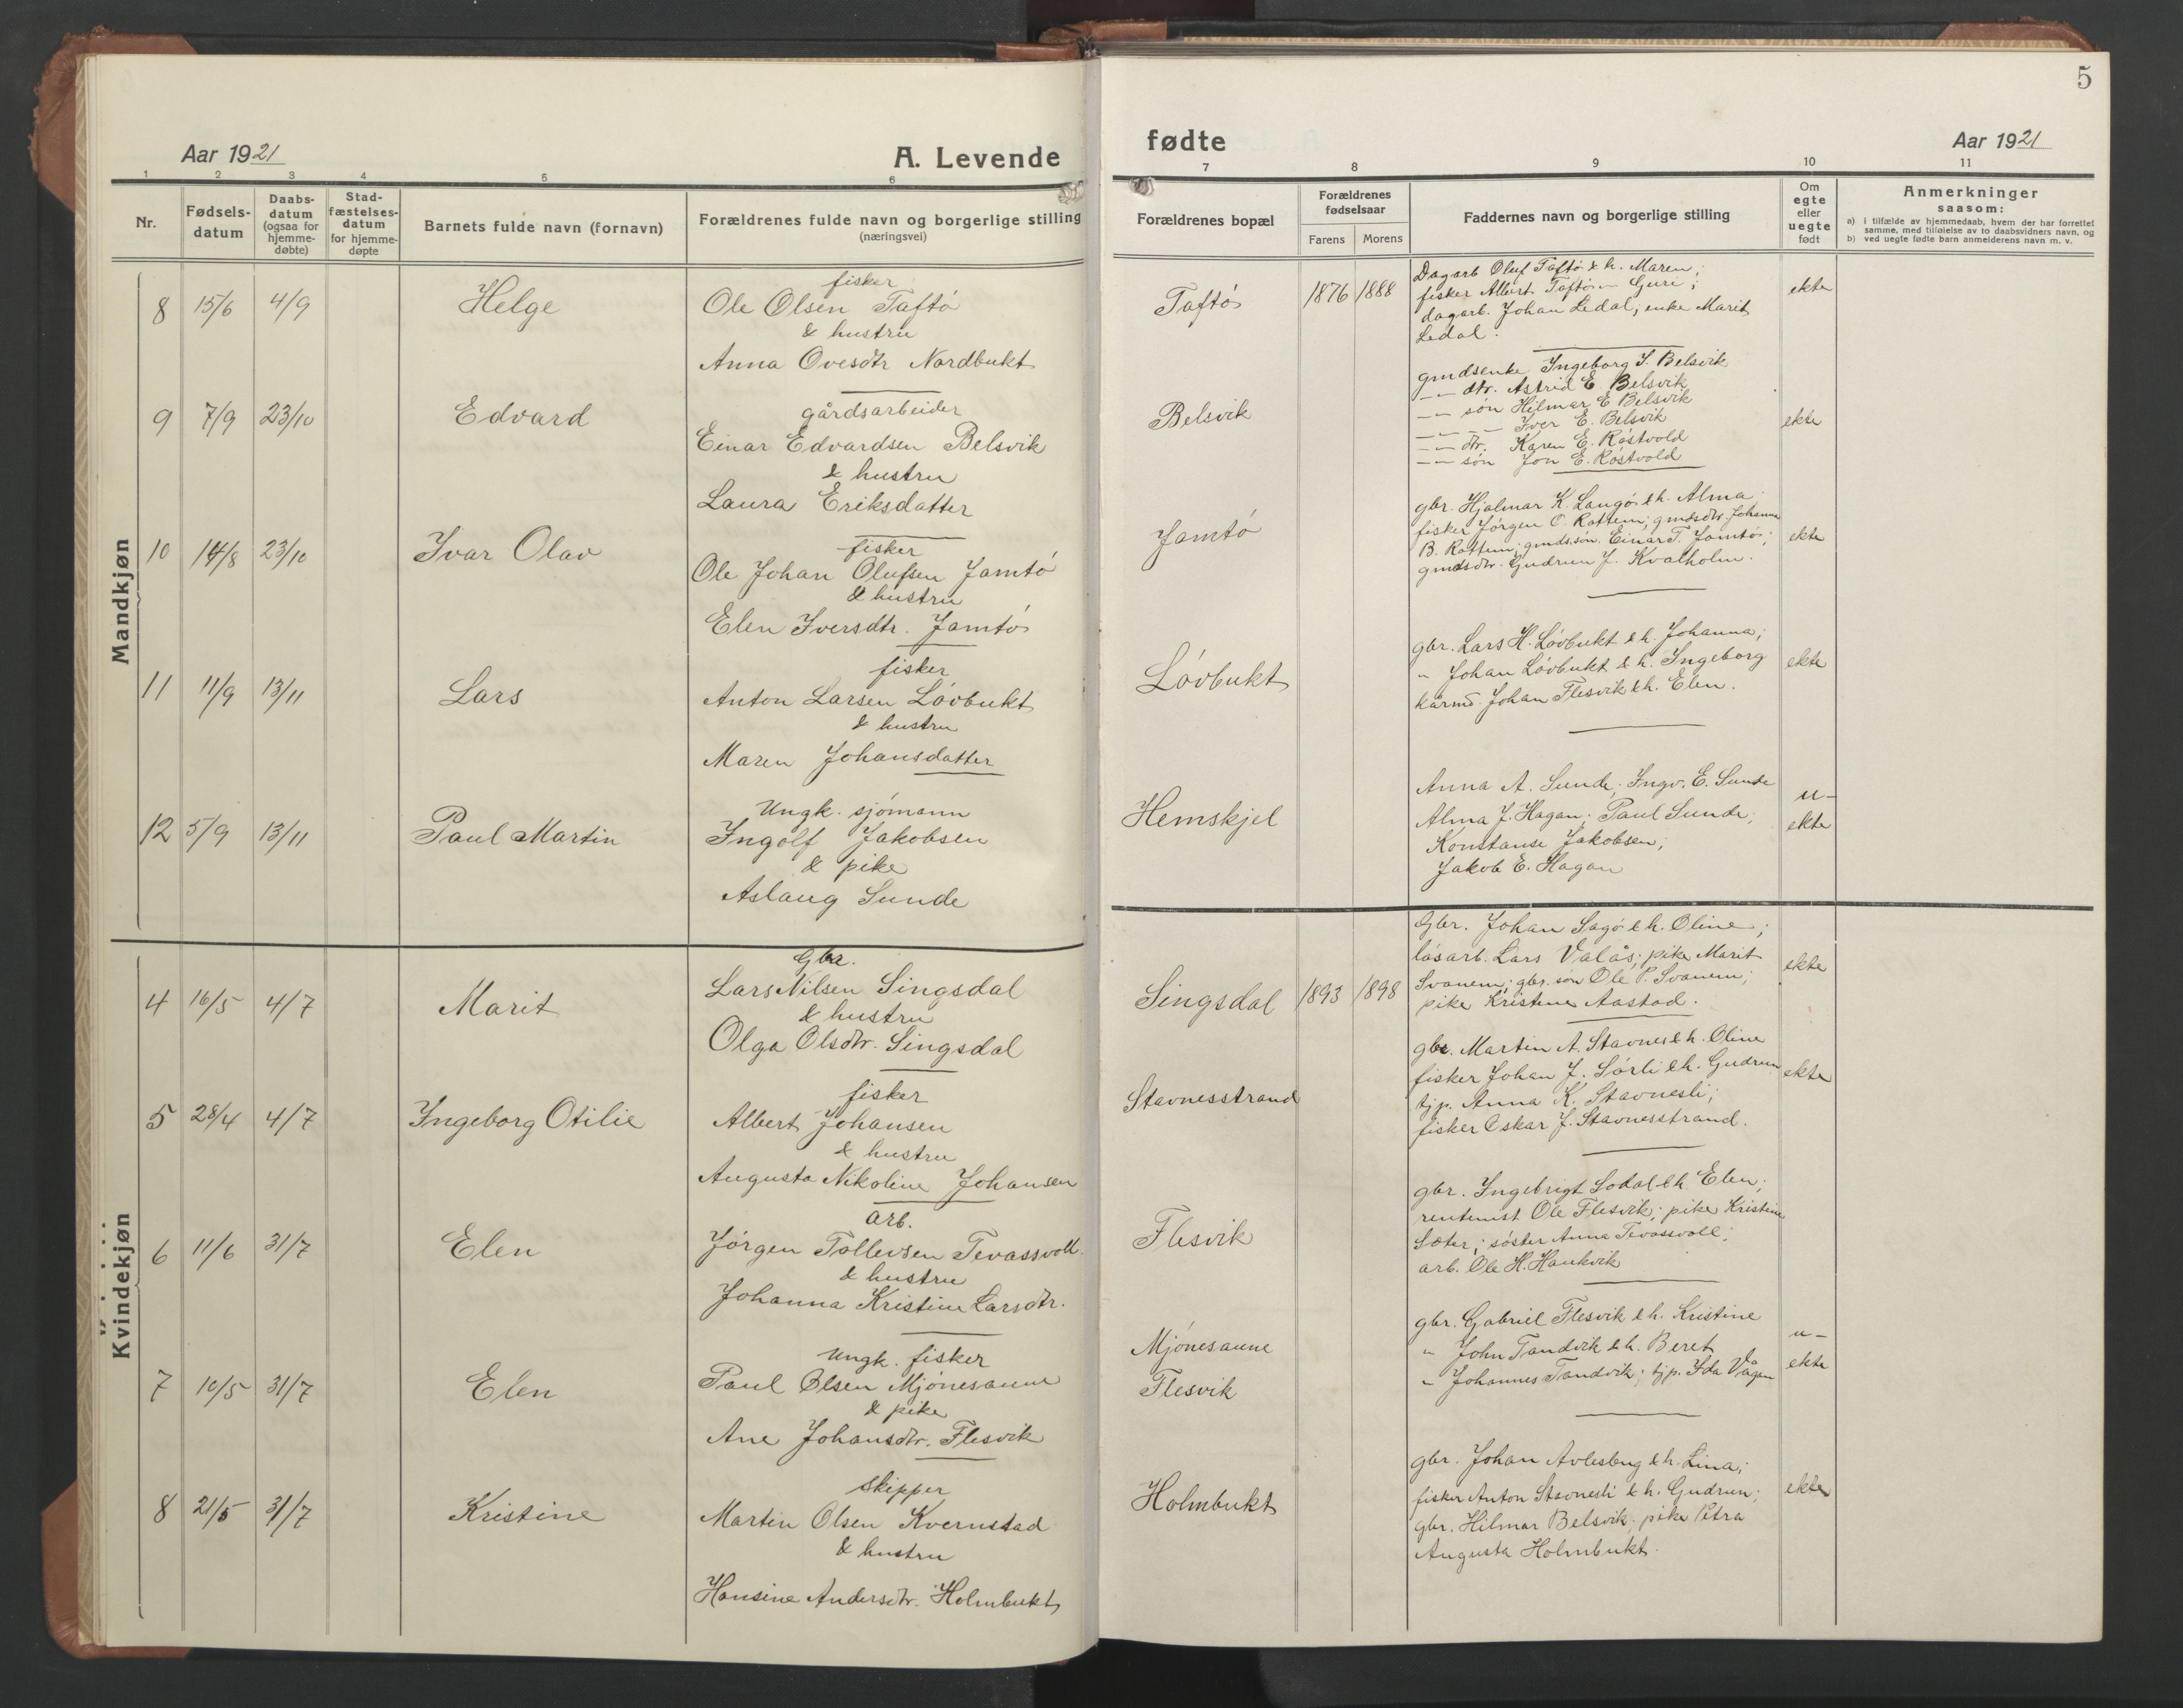 5
Aar 1921
A. Levende
1 2 3 4 5 6
Nr.
Fødsels-
datum
Daabs-
datum
(ogsaa for
hjemme-
døbte)
Stad-
fæstelses-
datum
for hjemme-
døpte
Barnets fulde navn (fornavn)
Forældrenes fulde navn og borgerlige stilling
(næringsvei)
Mandkjøn
fisker
8 15/6 4/9 Helge Ole Olsen Taftö
& hustru
Anna Ovesdtr Nordbukt
gårdsarbeider
9 7/9 23/10 Edvard
Einar Edvardsen Belsvik
& hustru
Laura Eriksdatter
fisker
10 14/8 23/10 Ivar Olav
Ole Johan Olufsen Jamtö
& hustru
Elen Iversdtr. Jamtö
fisker
11 11/9 13/11 Lars Anton Larsen Lövbukt
& hustru
Maren Johansdatter
Ungk. sjömann
12 5/9 13/11 Paul Martin Ingolf Jakobsen
& pike
Aslaug Sunde
Kvindekjøn
Gbr.
4 16/5 4/7 Marit Lars Nilsen Singsdal
& hustru
Olga Olsdtr. Singsdal
fisker
5 28/4 4/7 Ingeborg Otilie Albert Johansen
& hustru
Augusta Nikoline Johansen
arb.
6 11/6 31/7 Elen Jörgen Tollevsen Tevassvoll
& hustru
Johanna Kristine Larsdtr.
Ungk. fisker
7 10/5 31/7 Elen Paul Olsen Mjönesaune
& pike
Ane Johansdtr. Flesvik
skipper
8 21/5 31/7 Kristine Martin Olsen Kvernstad
& hustru
Hansine Andersdtr. Holmbukt
fødte
Aar 1921
7 8 9 10 11
Forældrenes bopæl
Forældrenes
fødselsaar
Farens Morens
Faddernes navn og borgerlige stilling
Om
egte
eller
uegte
født
Anmerkninger
saasom:
a) i tilfælde av hjemmedaab, hvem der har forrettet
samme, med tilføielse av to daabsvidners navn, og
b) ved uegte fødte barn anmelderens navn m. v.
Taftö 1876 1888 ekte
Dagarb Oluf Taftö & h. Maren;
fisker Albert Taftö – " – Guri;
dagarb. Johan Ledal, enke Marit
Ledal.
Belsvik ekte
gmdsenke Ingeborg J. Belsvik
– " – dtr. Astrid E. Belsvik
– " – sön Hilmar E Belsvik
– " – – " – Iver E. Belsvik
– " – dtr. Karen E. Röstvold
– " – sön Jon E. Röstvold
Jamtö ekte
gbr. Hjalmar K. Langö & h. Alma;
fisker Jörgen O. Rottem; gmdsdtr Johanna
B. Rottem; gmds.sön. Einar T. Jamtö;
gmdsdtr. Gudrun J. Kvalholm.
Lövbukt ekte
gbr. Lars H. Lövbukt & h. Johanna;
" Johan Lövbukt & h. Ingeborg
kårmd. Johan Flesvik & h. Elen.
Hemskjel u-
ekte
Anna A. Sunde; Ingv. E. Sunde
Alma J. Hagan; Paul Sunde;
Konstanse Jakobsen;
Jakob E. Hagan
Singsdal 1893 1898 ekte
Gbr. Johan Sagö & h. Oline;
lösarb. Lars Valås; pike Marit
Svanem; gbr. sön Ole P. Svanem;
pike Kristine Aastad.
Stavnesstrand ekte
gbr. Martin A. Stavnes & h. Oline
fisker Johan J. Sörli & h. Gudrun
tjp. Anna K. Stavnesli;
fisker Oskar J. Stavnesstrand.
Flesvik
gbr. Ingebrigt Sodal & h. Elen;
rentenist Ole Flesvik; pike Kristine
Sæter; söster Anna Tevassvoll;
arb. Ole H. Haukvik
Mjönesaune
Flesvik u-
ekte
gbr. Gabriel Flesvik & h. Kristine
" John Tandvik & h. Beret
" Johannes Tandvik; tjp. Ida Vågan
Holmbukt ekte
gbr. Johan Avlesbug & h. Lina;
fisker Anton Stavnesli & h. Gudrun;
gbr. Hilmar Belsvik; pike Petra
Augusta Holmbukt.